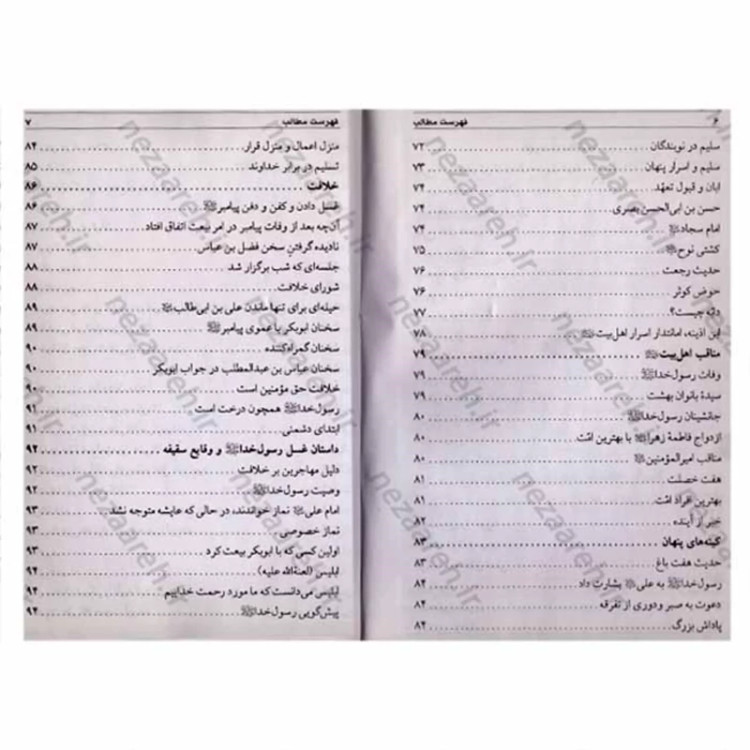 ۶ فهرست مطالب
سلیم در نوبندگان ۷۲
سلیم و اسرار پنهان ۷۳
ابان و قبول تعهّد ۷۴
حسن بن ابی‌الحسن بصری ۷۴
امام سجاد ۷۴
کشتی نوح ۷۵
حدیث رجعت ۷۶
حوض کوثر ۷۶
دابّه چیست؟ ۷۷
ابن اذینه، امانتدار اسرار اهل‌بیت ۷۸
مناقب اهل‌بیت ۷۹
وفات رسول‌خدا ۷۹
سیدهٔ بانوان بهشت ۷۹
جانشینان رسول‌خدا ۸۰
ازدواج فاطمهٔ زهرا با بهترین امّت ۸۰
مناقب امیرالمؤمنین ۸۰
هفت خصلت ۸۱
بهترین افراد امّت ۸۱
خبر از آینده ۸۲
کینه‌های پنهان ۸۳
حدیث هفت باغ ۸۳
رسول‌خدا به علی بشارت داد ۸۴
دعوت به صبر و دوری از تفرقه ۸۴
پاداش بزرگ ۸۴
فهرست مطالب ۷
منزل اعمال و منزل قرار ۸۴
تسلیم در برابر خداوند ۸۵
خلافت ۸۶
غسل دادن و کفن و دفن پیامبر ۸۶
آن‌چه بعد از وفات پیامبر در امر بیعت اتفاق افتاد ۸۷
نادیده گرفتن سخن فضل بن عباس ۸۷
جلسه‌ای که شب برگزار شد ۸۸
شورای خلافت ۸۸
حیله‌ای برای تنها ماندن علی بن ابی‌طالب ۸۹
سخنان ابوبکر با عموی پیامبر ۸۹
سخنان گمراه‌کننده ۹۰
سخنان عباس بن عبدالمطلب در جواب ابوبکر ۹۰
خلافت حق مؤمنین است ۹۰
رسول‌خدا همچون درخت است ۹۱
ابتدای دشمنی ۹۱
داستان غسل رسول‌خدا و وقایع سقیفه ۹۲
دلیل مهاجرین بر خلافت ۹۲
وصیت رسول‌خدا ۹۲
امام علی نماز خواندند، در حالی که عایشه متوجه نشد ۹۳
نماز خصوصی ۹۳
اولین کسی که با ابوبکر بیعت کرد ۹۳
ابلیس (لعنةالله علیه) ۹۴
ابلیس می‌دانست که ما مورد رحمت خداییم ۹۴
پیش‌گویی رسول‌خدا ۹۴
nezaareh.ir